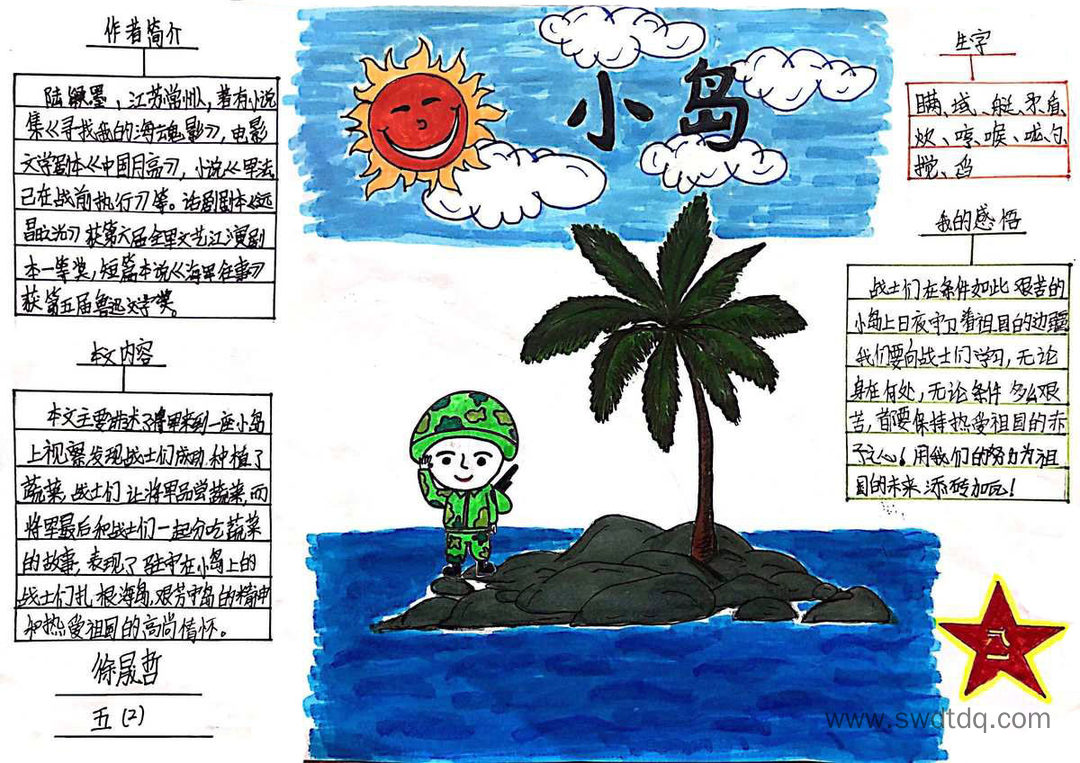 作者简介
陆颖墨，江苏常州人，著有小说
集《寻找我的海魂影》，电影
文学剧本《中国月亮》，小说《军法
已在战前执行》等。话剧剧本《远
岛之光》获第六届全军文艺汇演剧
本一等奖，短篇小说《海军往事》
获第五届鲁迅文学奖。
本文内容
本文主要讲述了将军来到一座小岛
上视察发现战士们成功种植了
蔬菜，战士们让将军品尝蔬菜，而
将军最后和战士们一起分吃蔬菜
的故事，表现了驻守在小岛上的
战士们扎根海岛，艰苦守岛的精神
和热爱祖国的高尚情怀。
徐晟哲
五(2)
小岛
生字
瞒、域、艇、
炊、喉、
搅、
我的感悟
战士们在条件如此艰苦的
小岛上日夜守卫着祖国的边疆
我们要向战士们学习，无论
身在何处，无论条件多么艰
苦，都要保持热爱祖国的赤
子之心！用我们的努力为祖
国的未来添砖加瓦！
八一
www.swdtdq.com